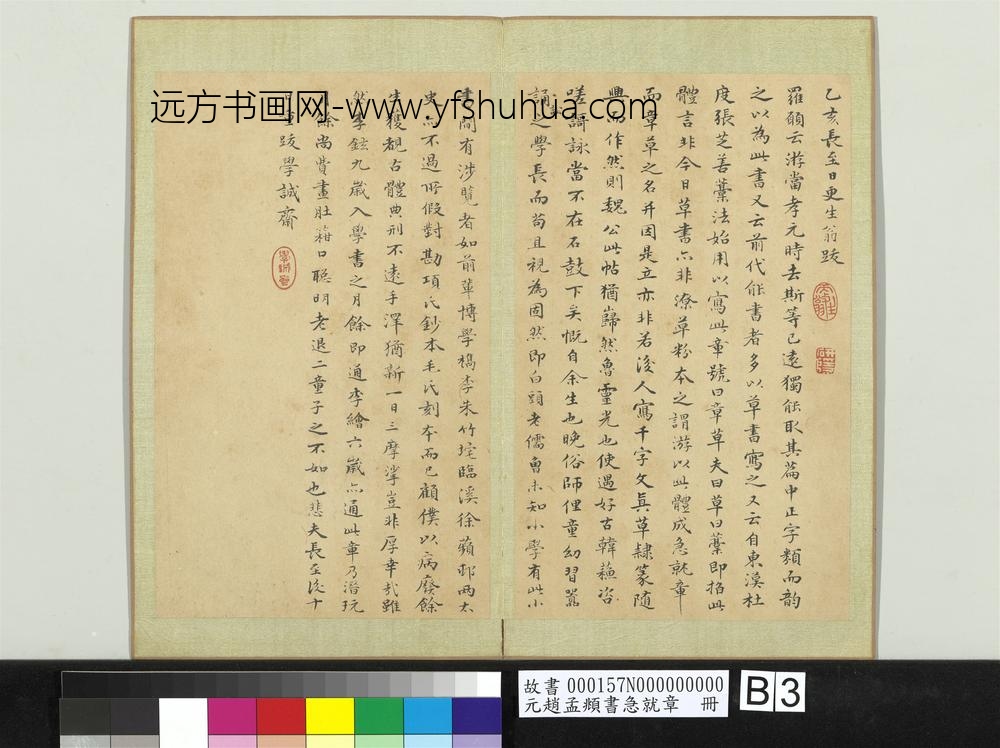 乙亥長至日更生翁跋
羅願云游當孝元時去斯等已遠獨能取其篇中正字類而韵
之以為此書又云前代能書者多以草書寫之又云自東漢杜
度張芝善藁法始用以寫此章號曰章草夫曰草曰藁即指此
體言非今日草書亦非潦草粉本之謂游以此體成急就章
而章草之名并因是立亦非若後人寫千字文真草隸篆随
興而作然則魏公此帖猶巋然魯靈光也使遇好古韓蘇咨
嗟謌詠當不在石鼓下矣慨自余生也晚俗師俚童幼習嚣
誦之學長而苟且視為固然即白頭老儒魯未知小學有此小
書間有涉覽者如前軰博學檇李朱竹垞臨溪徐蘋邨两太
史而不過所假對勘項氏鈔本毛氏刻本而已顧僕以病廢餘
生獲覩古體典刑不遠手澤猶新一日三摩挲豈非厚幸哉雖
然李鉉九歲入學書之月餘即通李繪六歲亦通此章乃潛玩
餘尚費畫肚箝口聰明老退二童子之不如也悲夫長至後十
跋學誠齋
远方书画网-www.yfshuhua.com
故書 000157N000000000
元趙孟頫書急就章 冊
B 3